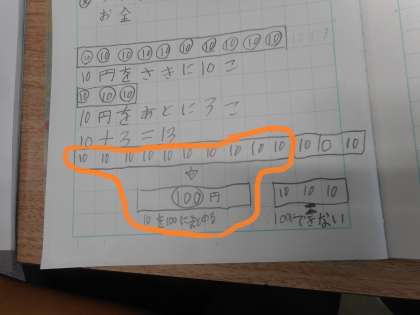 お金
10 10 10 10 10 10 10 10 10 10
10円をさきに10こ
10 10 10
10円をあとに3こ
10+3=13
10 10 10 10 10 10 10 10 10 10 10 10 10
100円 10 10 10
10を100にまとめる 100にできない